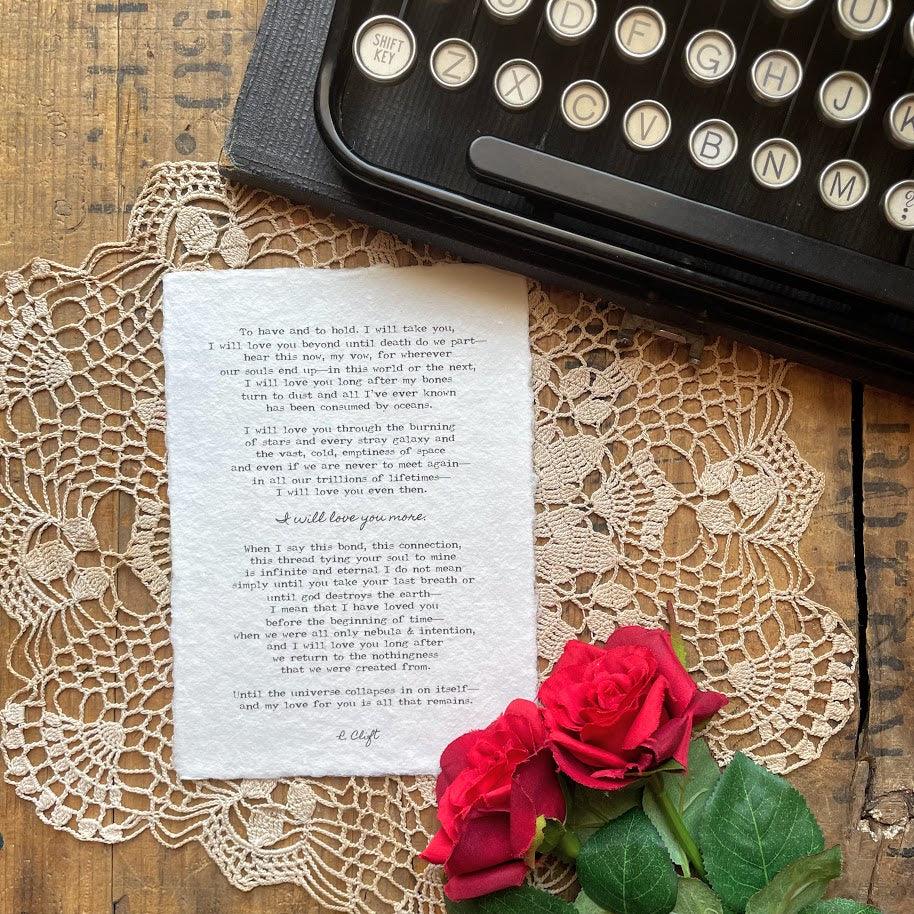 SHIFT KEY
D F G H J U
Z X C V B N M ?
To have and to hold. I will take you,
I will love you beyond until death do we part—
hear this now, my vow, for wherever
our souls end up—in this world or the next,
I will love you long after my bones
turn to dust and all I've ever known
has been consumed by oceans.
I will love you through the burning
of stars and every stray galaxy and
the vast, cold, emptiness of space
and even if we are never to meet again—
in all our trillions of lifetimes—
I will love you even then.
I will love you more.
When I say this bond, this connection,
this thread tying your soul to mine
is infinite and eternal I do not mean
simply until you take your last breath or
until god destroys the earth—
I mean that I have loved you
before the beginning of time—
when we were all only nebula & intention,
and I will love you long after
we return to the nothingness
that we were created from.
Until the universe collapses in on itself—
and my love for you is all that remains.
C. Clift